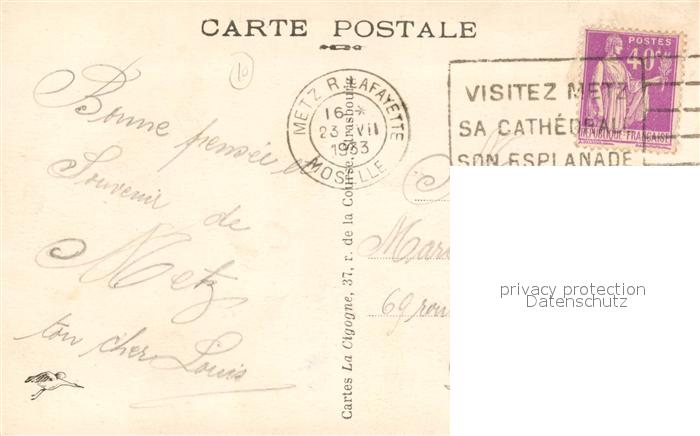 CARTE POSTALE
10
METZ R. LAFAYETTE
16 *
23 VII
1933
MOSELLE
POSTES
40c
RÉPUBLIQUE FRANÇAISE
VISITEZ METZ
SA CATHÉDRALE
SON ESPLANADE
Bonne pensée et
Souvenir de
Metz
ton cher Louis
Cartes La Cigogne, 37, r. de la Course, Strasbourg
69
privacy protection
Datenschutz